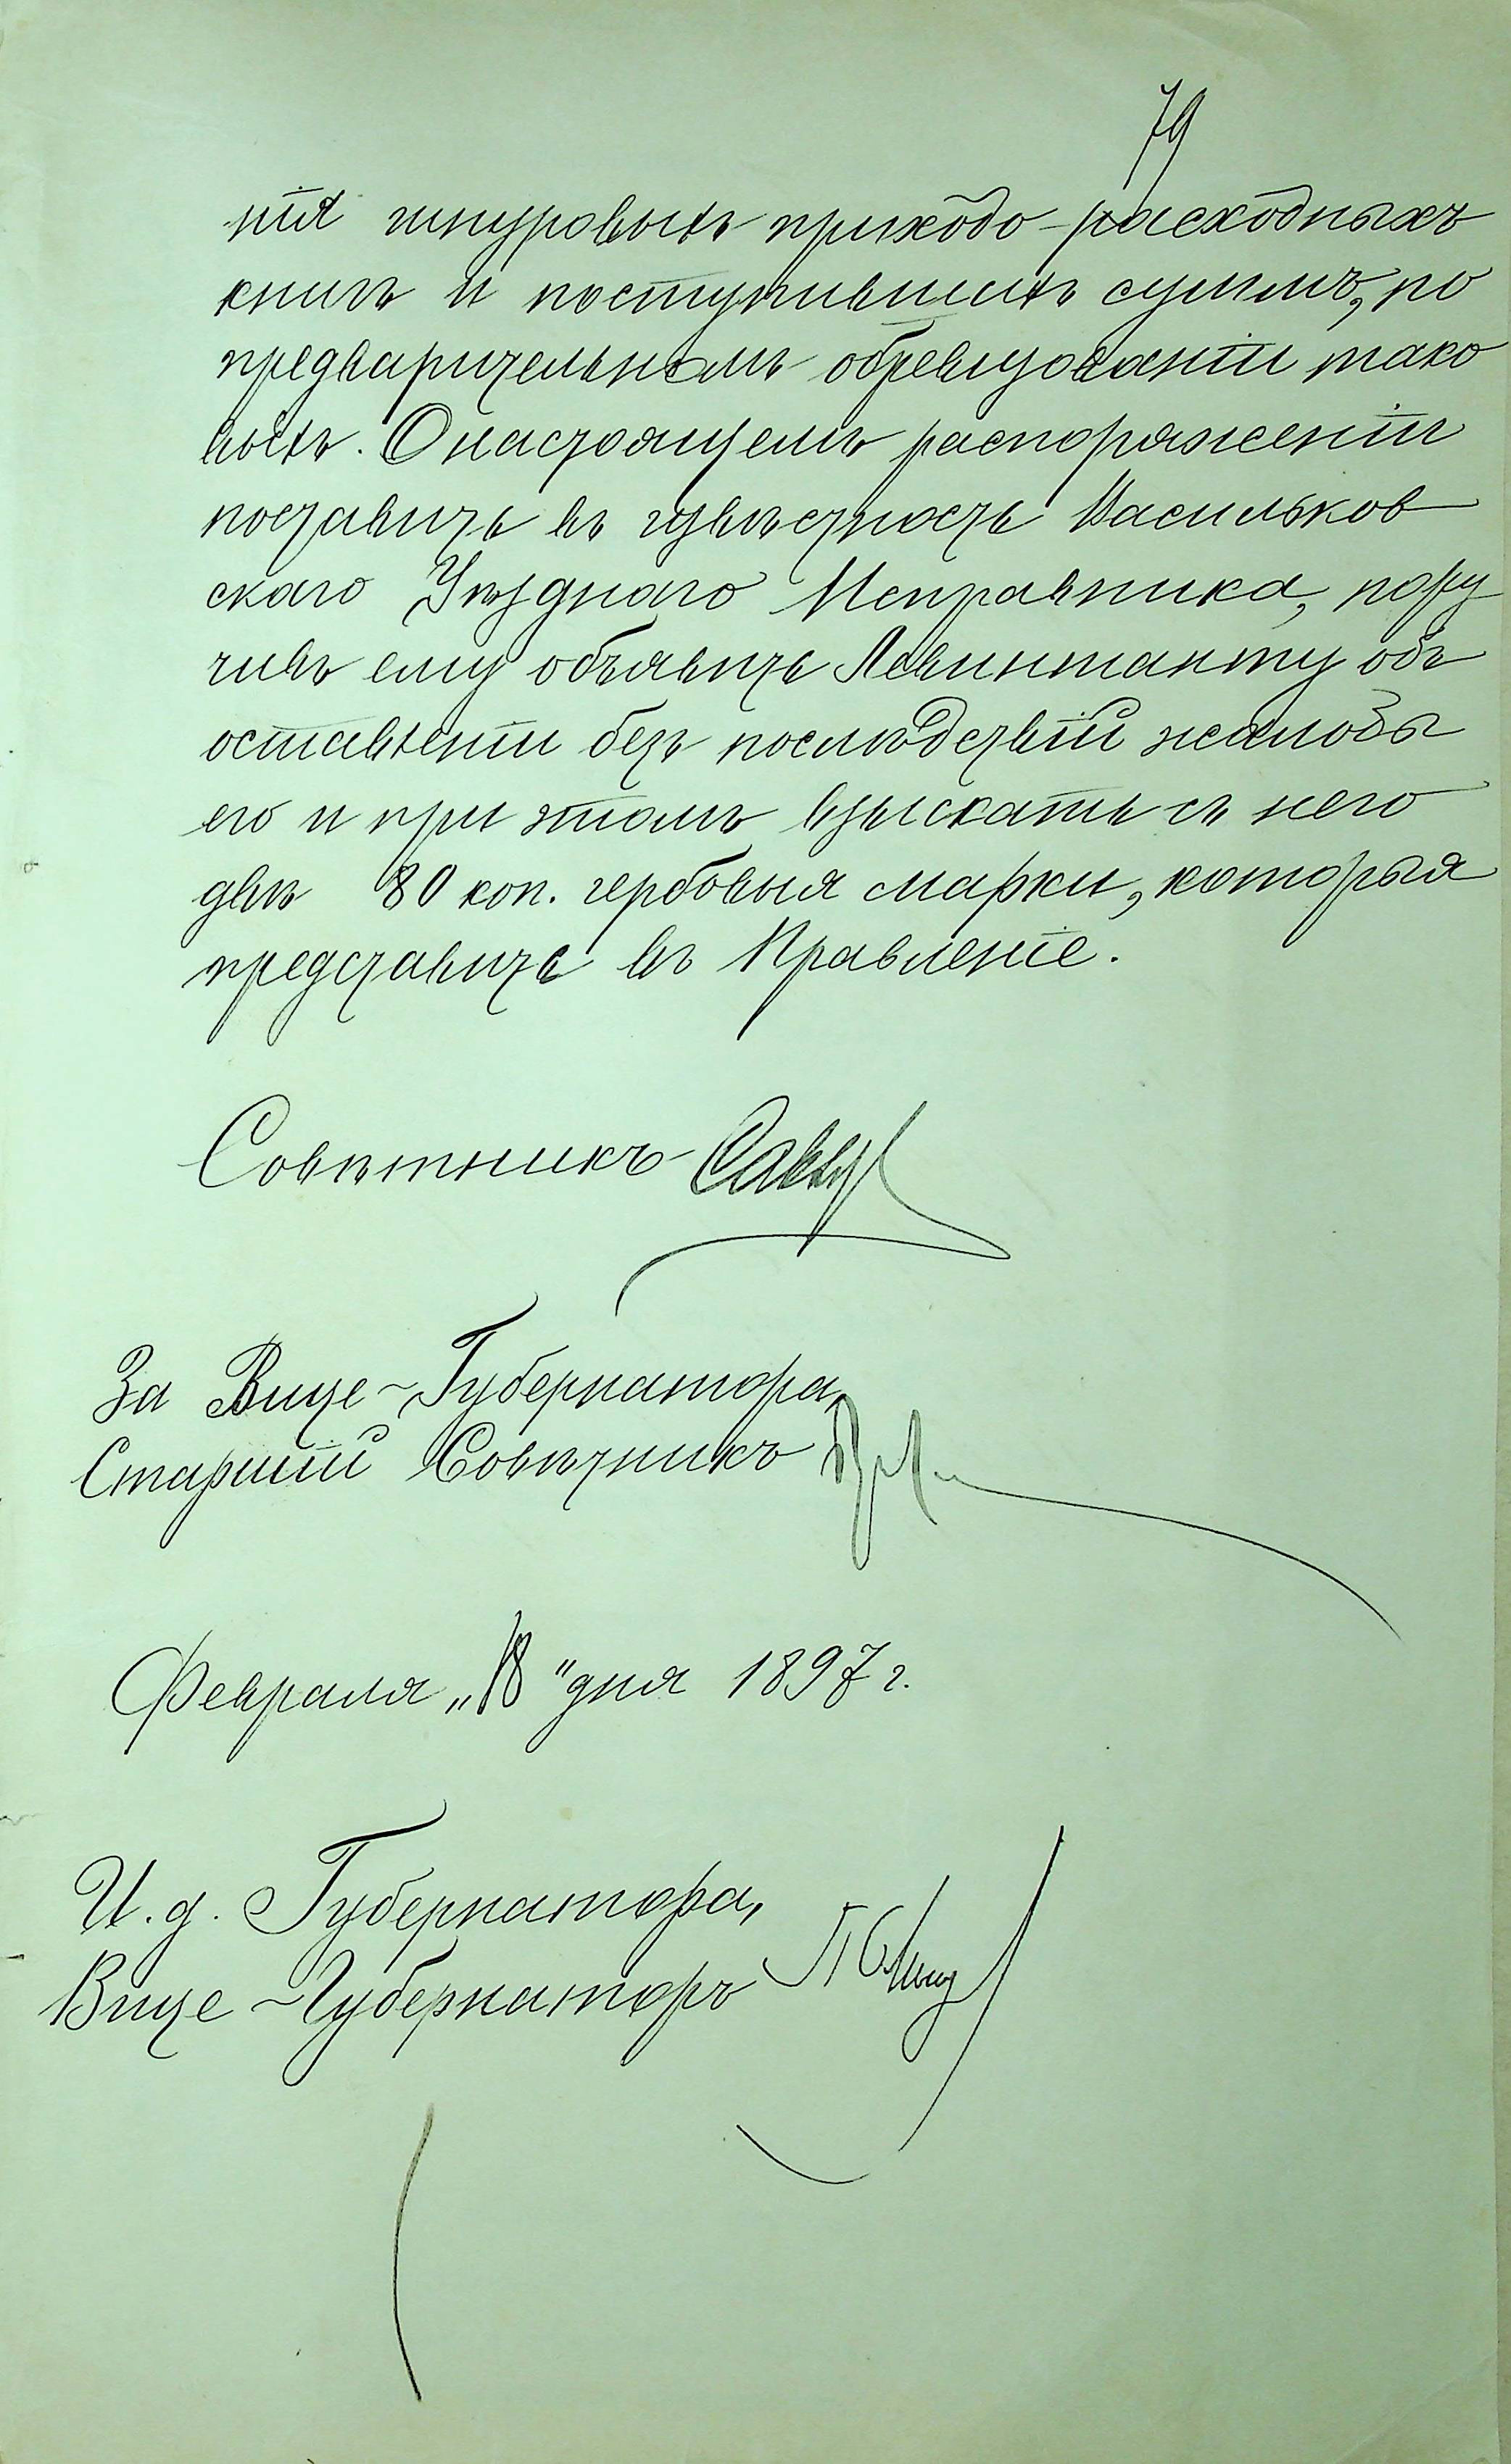 79
нія шнуровыхъ приходо-расходныхъ
книгъ и поступившихъ суммъ, по
предварительномъ обревизованіи тако
выхъ. О настоящемъ распоряженіи
поставить въ извѣстность Васильков
скаго Уѣзднаго Исправника, пору
чивъ ему объявить Левинтанту объ
оставленіи безъ послѣдствій жалобы
его и при этомъ взыскать съ него
двѣ 80 коп. гербовыя марки, которыя
представить въ Правленіе.
Совѣтникъ
За Вице-Губернатора,
Старшій Совѣтникъ
Февраля „18" дня 1897 г.
И. д. Губернатора,
Вице-Губернаторъ